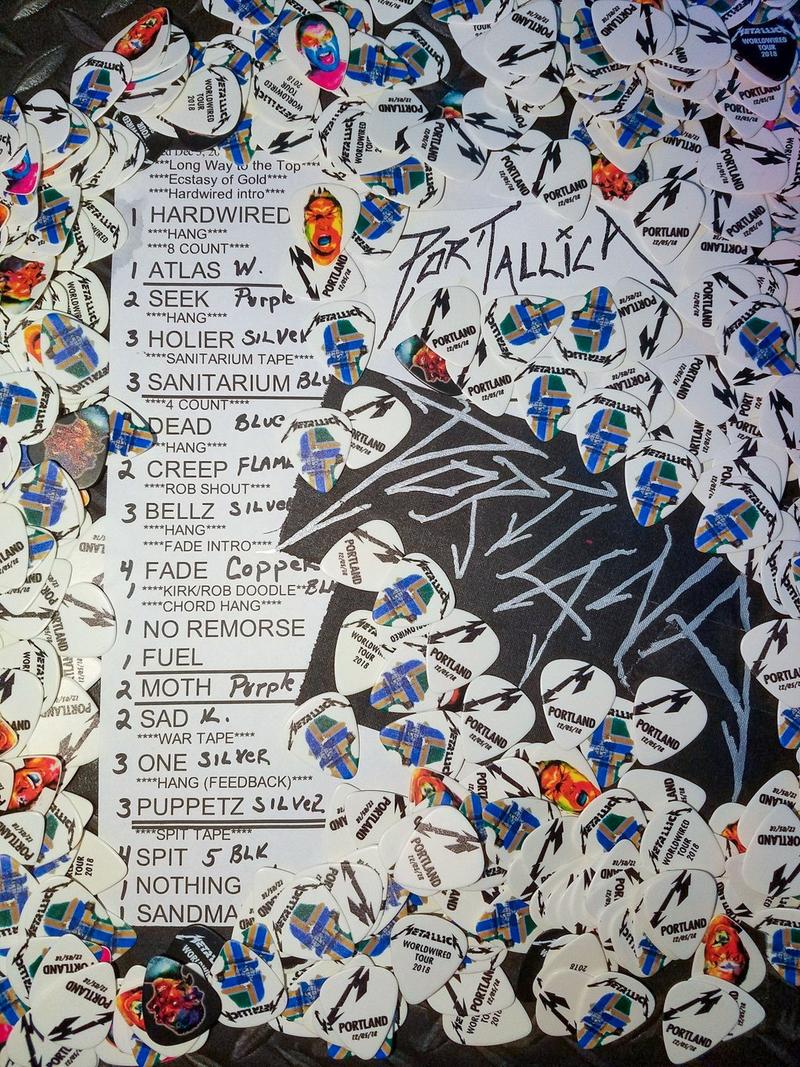 ****Long Way to the Top****
****Ecstasy of Gold****
****Hardwired intro****
1 HARDWIRED
****HANG****
****8 COUNT****
1 ATLAS W.
2 SEEK Purple
****HANG****
3 HOLIER SILVER
****SANITARIUM TAPE****
3 SANITARIUM BLU
****4 COUNT****
DEAD BLUE
****HANG****
2 CREEP FLAM
****ROB SHOUT****
3 BELLZ SILVER
****HANG****
****FADE INTRO****
4 FADE Copper
1 ****KIRK/ROB DOODLE** BLU
****CHORD HANG****
1 NO REMORSE
1 FUEL
2 MOTH Purple
2 SAD K.
****WAR TAPE****
3 ONE SILVER
****HANG (FEEDBACK)****
3 PUPPETZ SILVEZ
****SPIT TAPE****
4 SPIT 5 BLK
1 NOTHING
1 SANDMA
PORTALLICA
PORTLAND
METALLICA
WORLDWIRED
TOUR
2018
PORTLAND
12/05/18